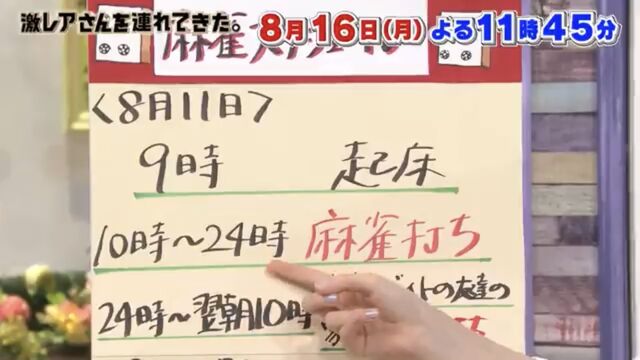 激レアさんを連れてきた。
8月16日(月)よる11時45分
麻雀スケジュール
<8月11日>
9時 起床
10時~24時 麻雀打ち
24時~翌朝10時 バイトの友達の